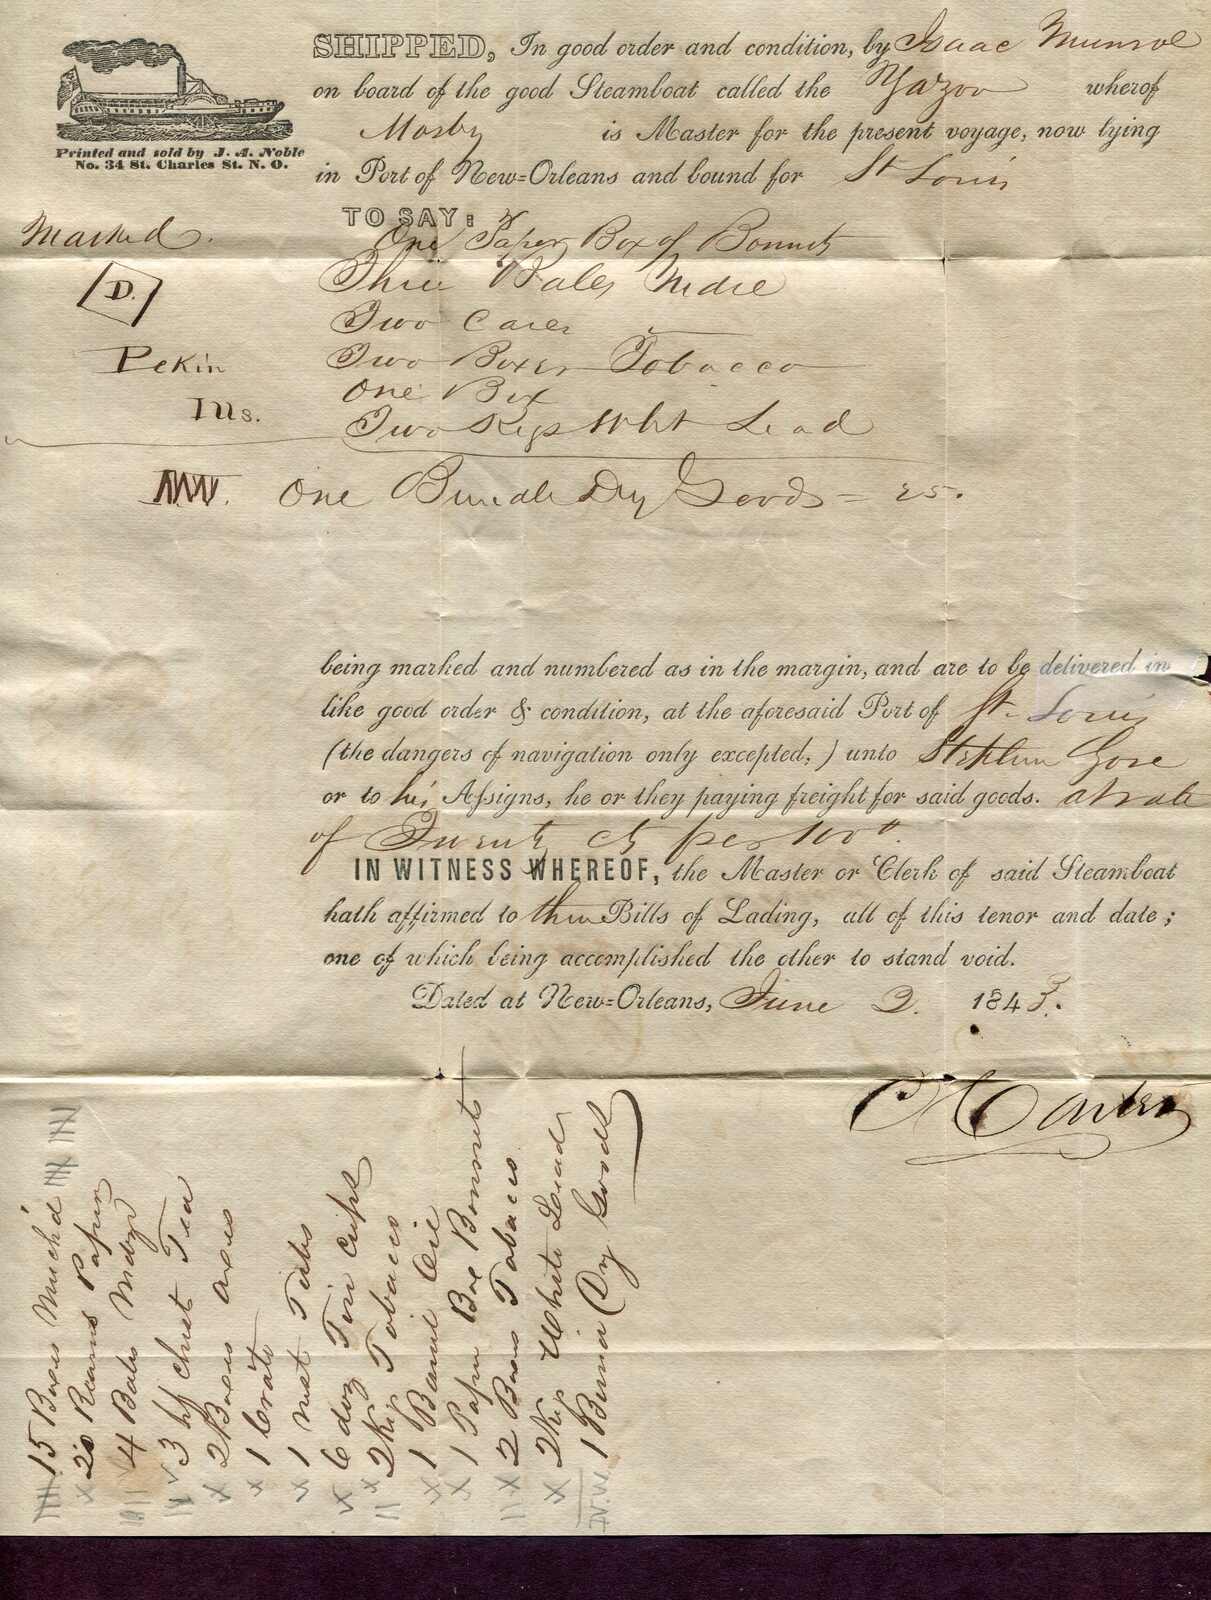 Printed and sold by J. A. Noble
No. 34 St. Charles St. N. O.
SHIPPED, In good order and condition, by Isaac Munroe
on board of the good Steamboat called the Yazoo wherof
Mosby is Master for the present voyage, now lying
in Port of New=Orleans and bound for St Louis
TO SAY:
Marked. One Paper Box of Bonnets
D. Three Bales Mdze
Two Cases
Pekin Two Boxes Tobacco
Ills. One Box
Two Kegs Wht Lead
NW. One Bundle Dry Goods = 25.
being marked and numbered as in the margin, and are to be delivered in
like good order & condition, at the aforesaid Port of St. Louis
(the dangers of navigation only excepted,) unto Stephen Gore
or to his Assigns, he or they paying freight for said goods. at rate
of Twenty cts per 100 lb.
IN WITNESS WHEREOF, the Master or Clerk of said Steamboat
hath affirmed to three Bills of Lading, all of this tenor and date;
one of which being accomplished the other to stand void.
Dated at New=Orleans, June 2. 1843.
15 Boxes Merch'd
20 Reams Paper
4 Bales Mdze
3 hf Chest Tea
2 Boxes axes
1 Crate
1 nest Tubs
6 doz Tin Cups
2 Kegs Tobacco
1 Barrel Oil
1 Paper Box Bonnets
2 Boxes Tobacco
2 Kegs White Lead
1 Bundle Dry Goods
N.W.